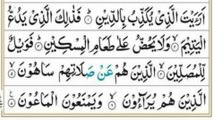 اَرَءَيْتَ الَّذِىْ يُكَذِّبُ بِالدِّيْنِ ۝ فَذٰلِكَ الَّذِىْ يَدُعُّ
الْيَتِيْمَ ۝ وَلَا يَحُضُّ عَلٰى طَعَامِ الْمِسْكِيْنِ ۝ فَوَيْلٌ
لِّلْمُصَلِّيْنَ ۝ الَّذِيْنَ هُمْ عَنْ صَلَاتِهِمْ سَاهُوْنَ ۝
الَّذِيْنَ هُمْ يُرَآءُوْنَ ۝ وَيَمْنَعُوْنَ الْمَاعُوْنَ ۝